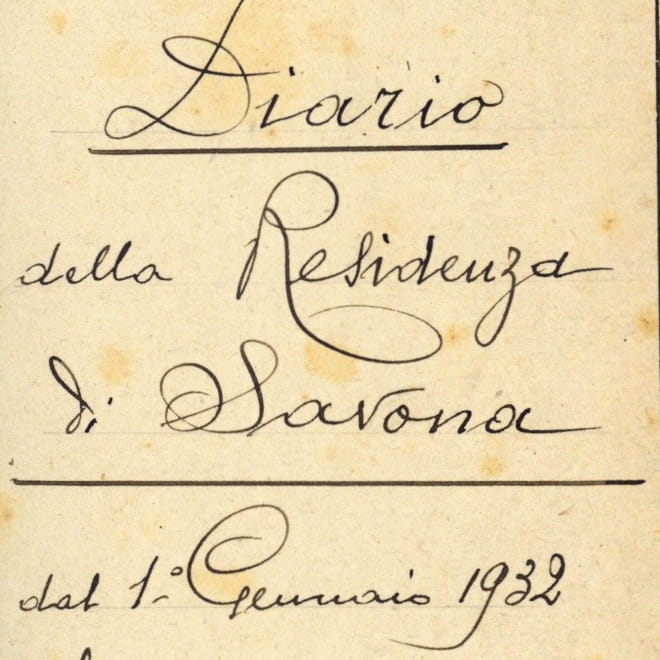 Diario
della Residenza
di Savona
dal 1.º Gennaio 1932